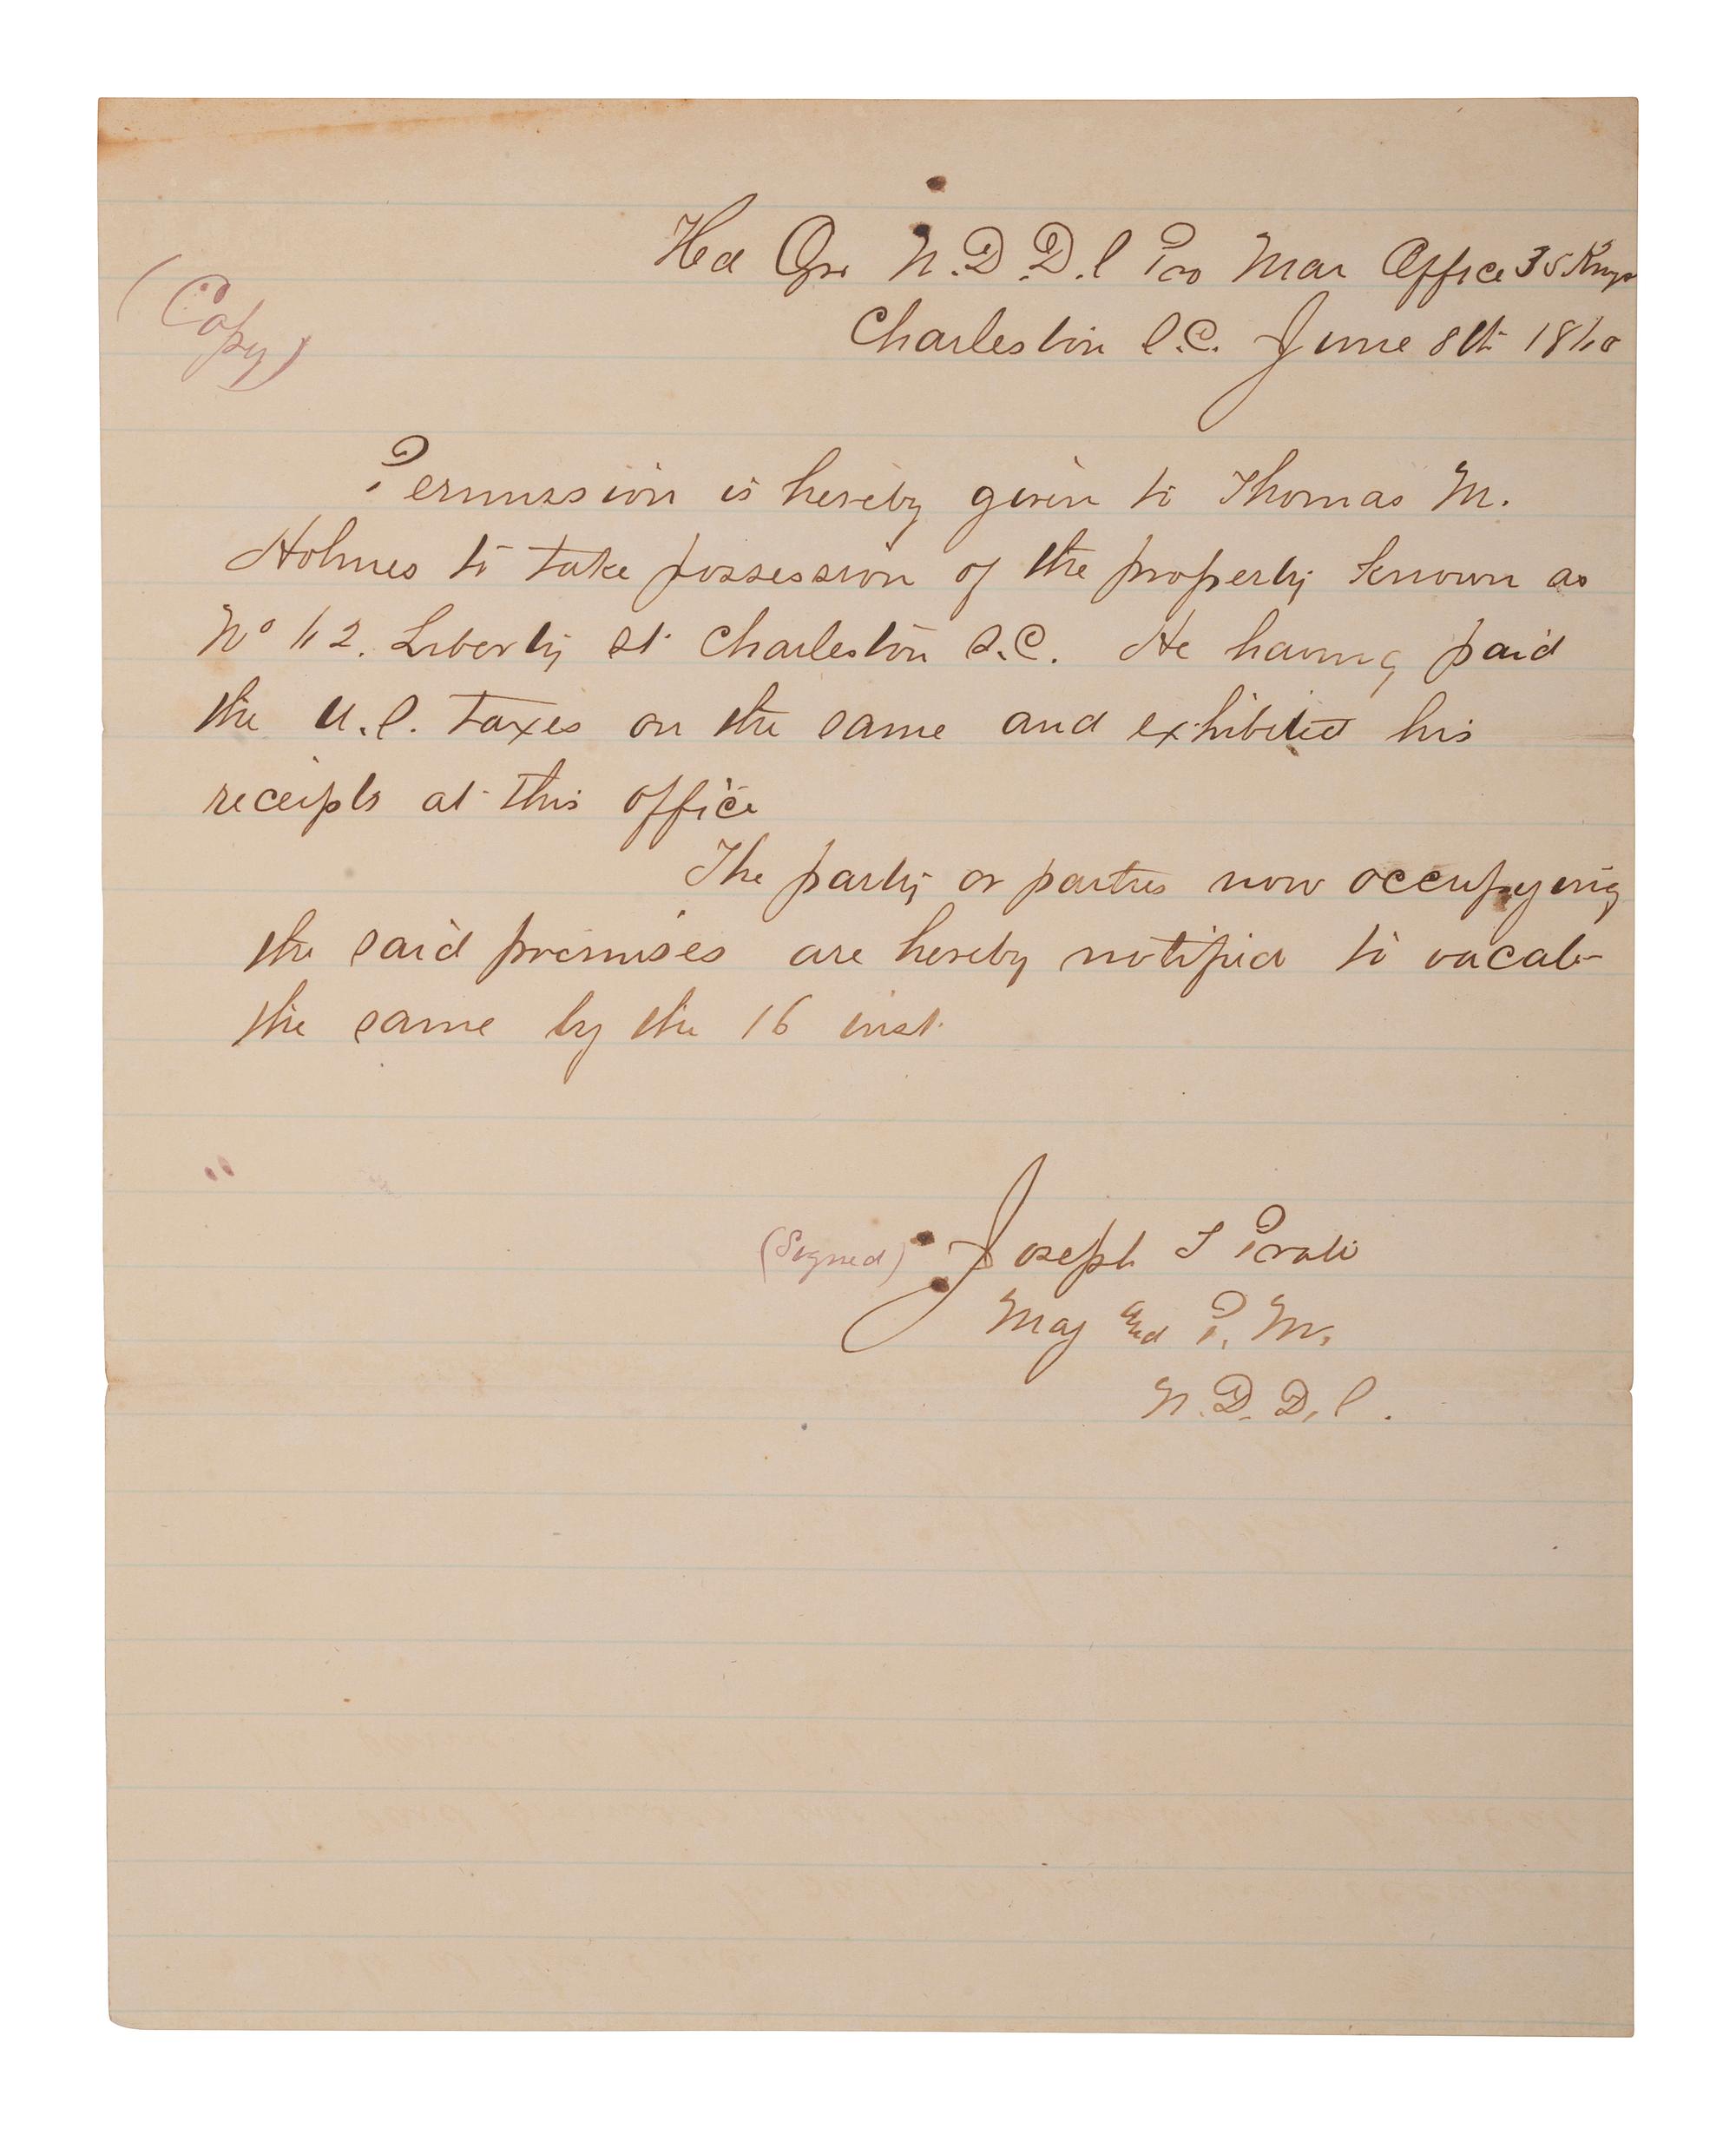 Hd Qrs N.D.D.S Pro Mar Office 35 King
(Copy)
Charleston S.C. June 8th
Permission is hereby given to Thomas M.
Holmes to take possession of the property known as
No 42. Liberty St Charleston S.C. He having paid
the U.S. taxes on the same and exhibited his
receipts at this office
The party or parties now occupying
the said premises are hereby notified to vacate
the same by the 16 inst.
(Signed) Joseph T Pratt
Maj 2nd P. M.
N.D.D.S.